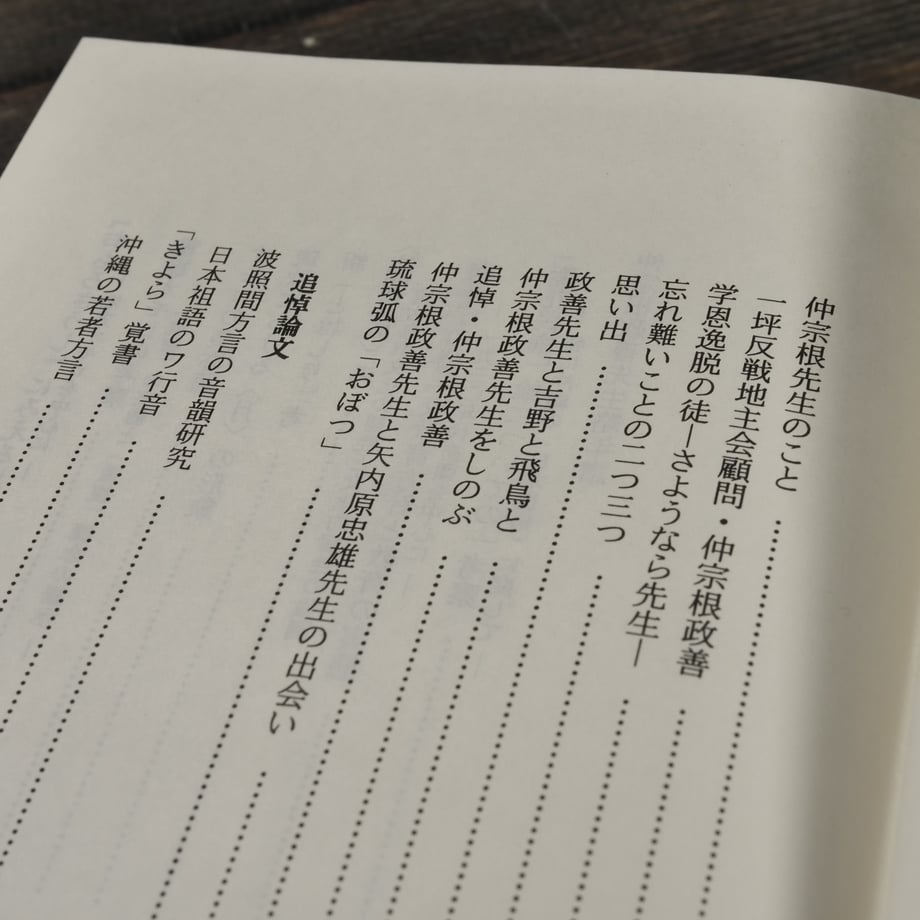 仲宗根先生のこと
一坪反戦地主会顧問・仲宗根政善
学恩逸脱の徒―さようなら先生―
忘れ難いことの二つ三つ
思い出
政善先生と吉野と飛鳥と
仲宗根政善先生をしのぶ
追悼・仲宗根政善
仲宗根政善先生と矢内原忠雄先生の出会い
琉球弧の「おぼつ」
追悼論文
波照間方言の音韻研究
日本祖語のワ行音
「きよら」覚書
沖縄の若者方言